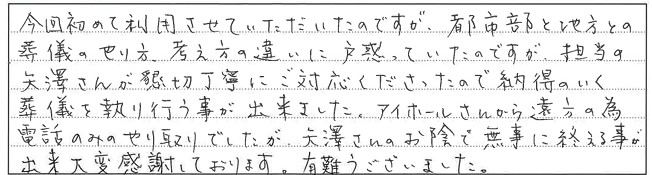 今回初めて利用させていただいたのですが、都市部と地方との
葬儀のやり方、考え方の違いに戸惑っていたのですが、担当の
矢澤さんが懇切丁寧にご対応くださったので納得のいく
葬儀を執り行う事が出来ました。アイホールさんから遠方の為
電話のみのやり取りでしたが、矢澤さんのお陰で無事に終える事が
出来大変感謝しております。有難うございました。